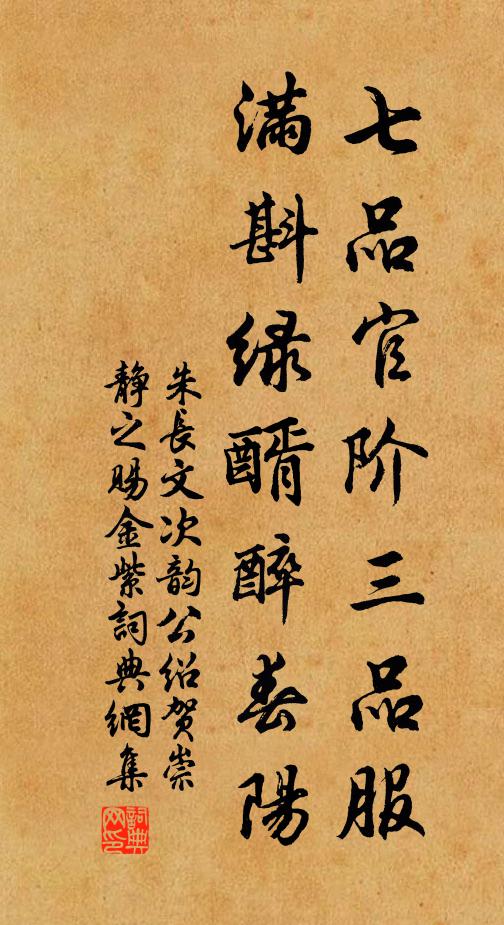 七品官阶三品服
满斟绿醑醉春陽
朱長文次韵公绍贺崇
静之赐金紫詞典網集
詞典网印